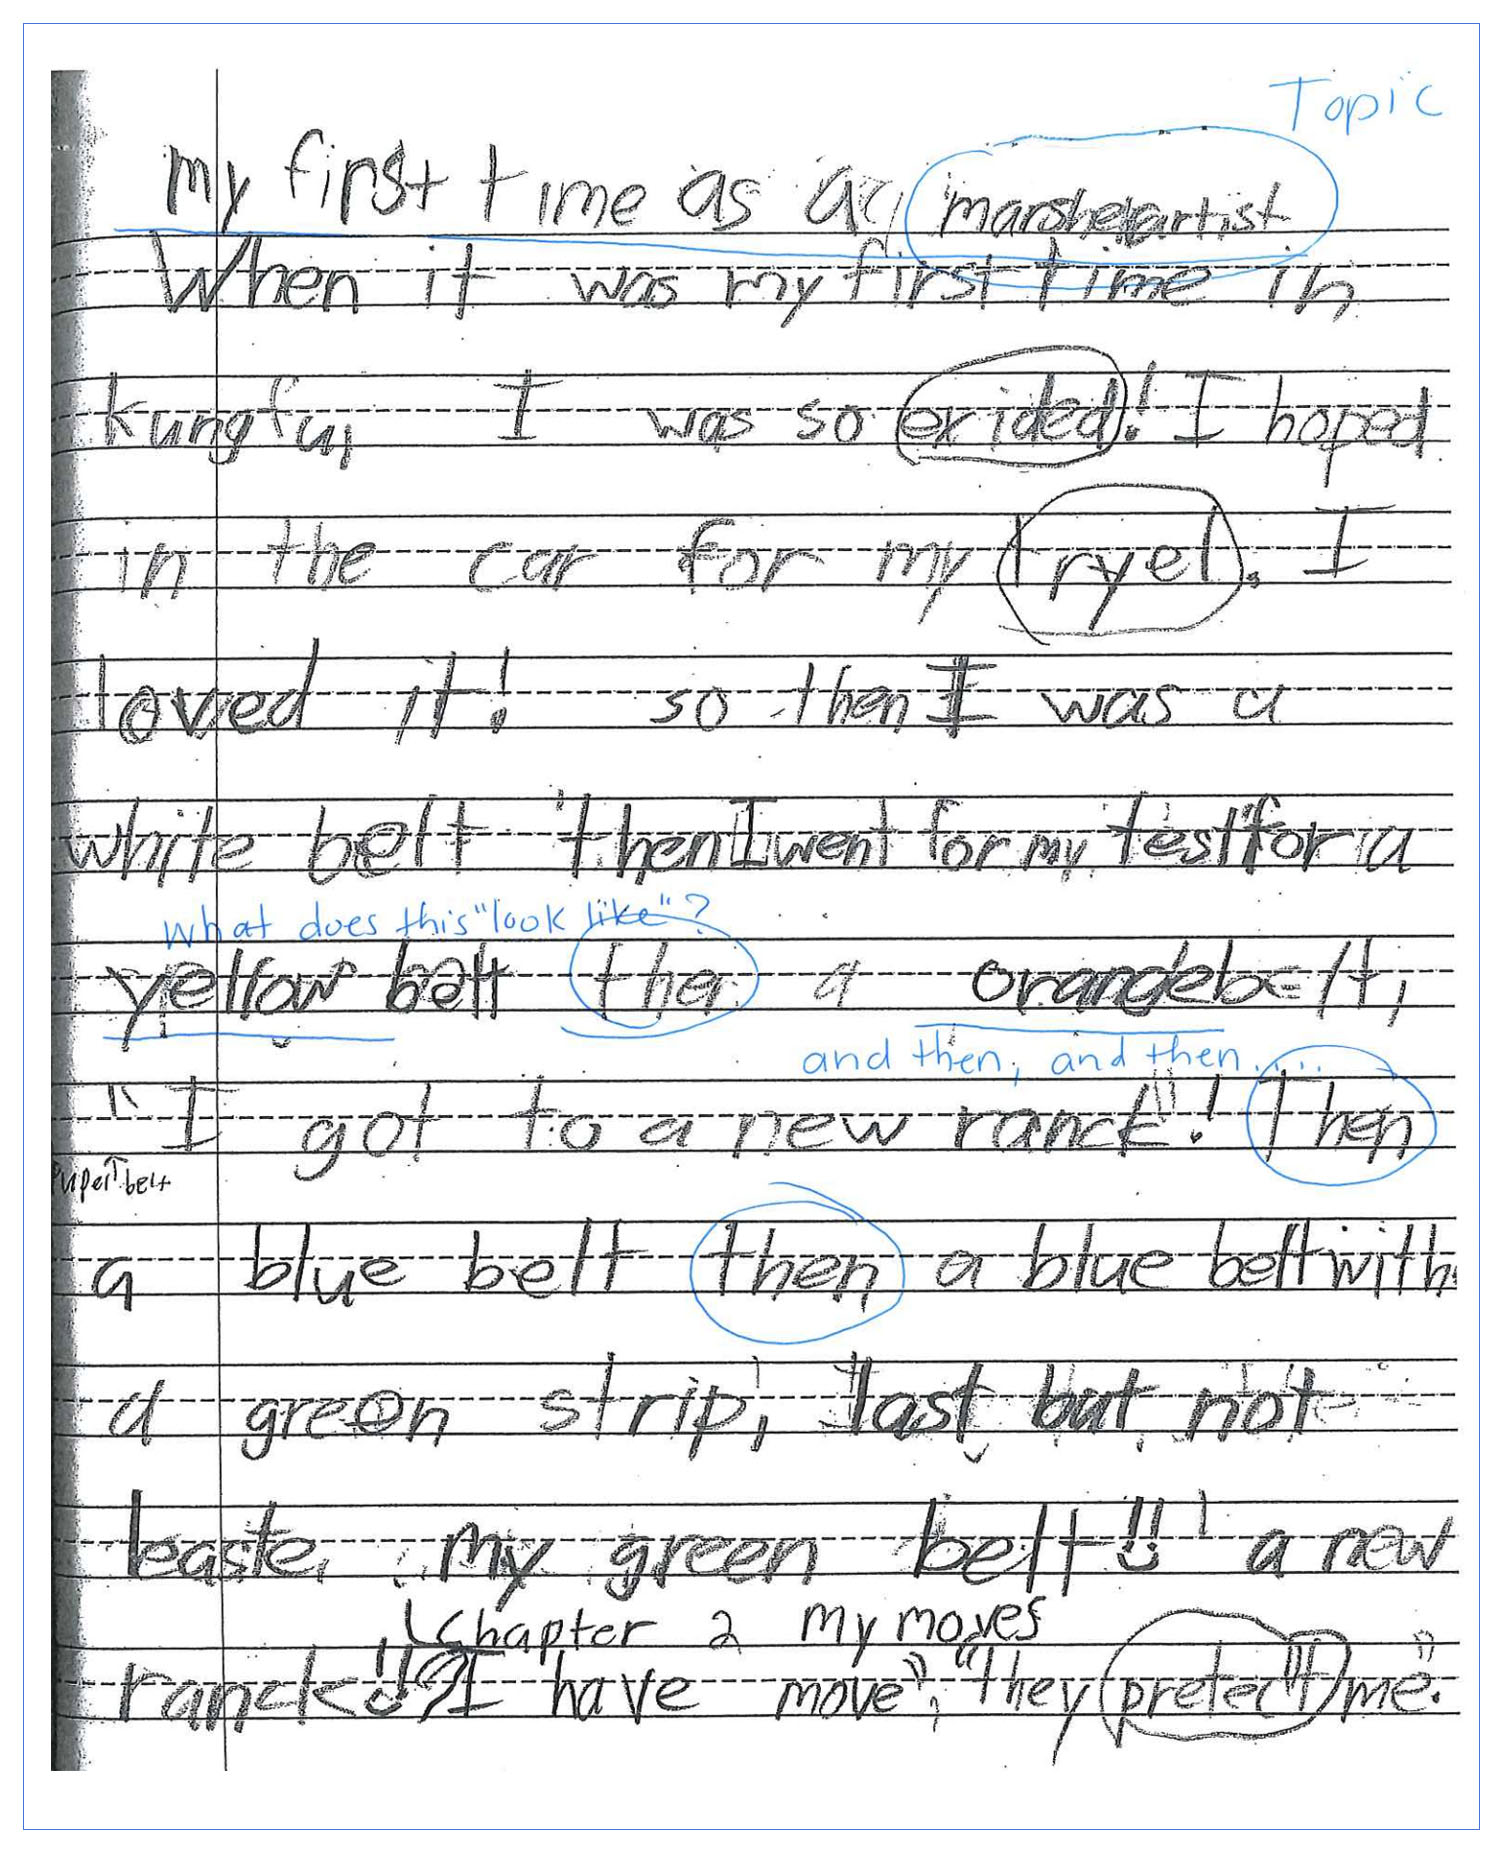 Topic
my first time as a marshelartist
When it was my first time in
kungfu, I was so exided! I hoped
in the car for my tryel. I
loved it! so then I was a
white belt then I went for my test for a
what does this "look like"?
yellow belt then a orangebelt,
and then, and then.....
"I got to a new ranck"! Then
belt
a blue belt then a blue belt with
a green strip, last but not
leaste, my green belt!! a new
Chapter 2 my moves
ranck!! I have move", "they pretect me".